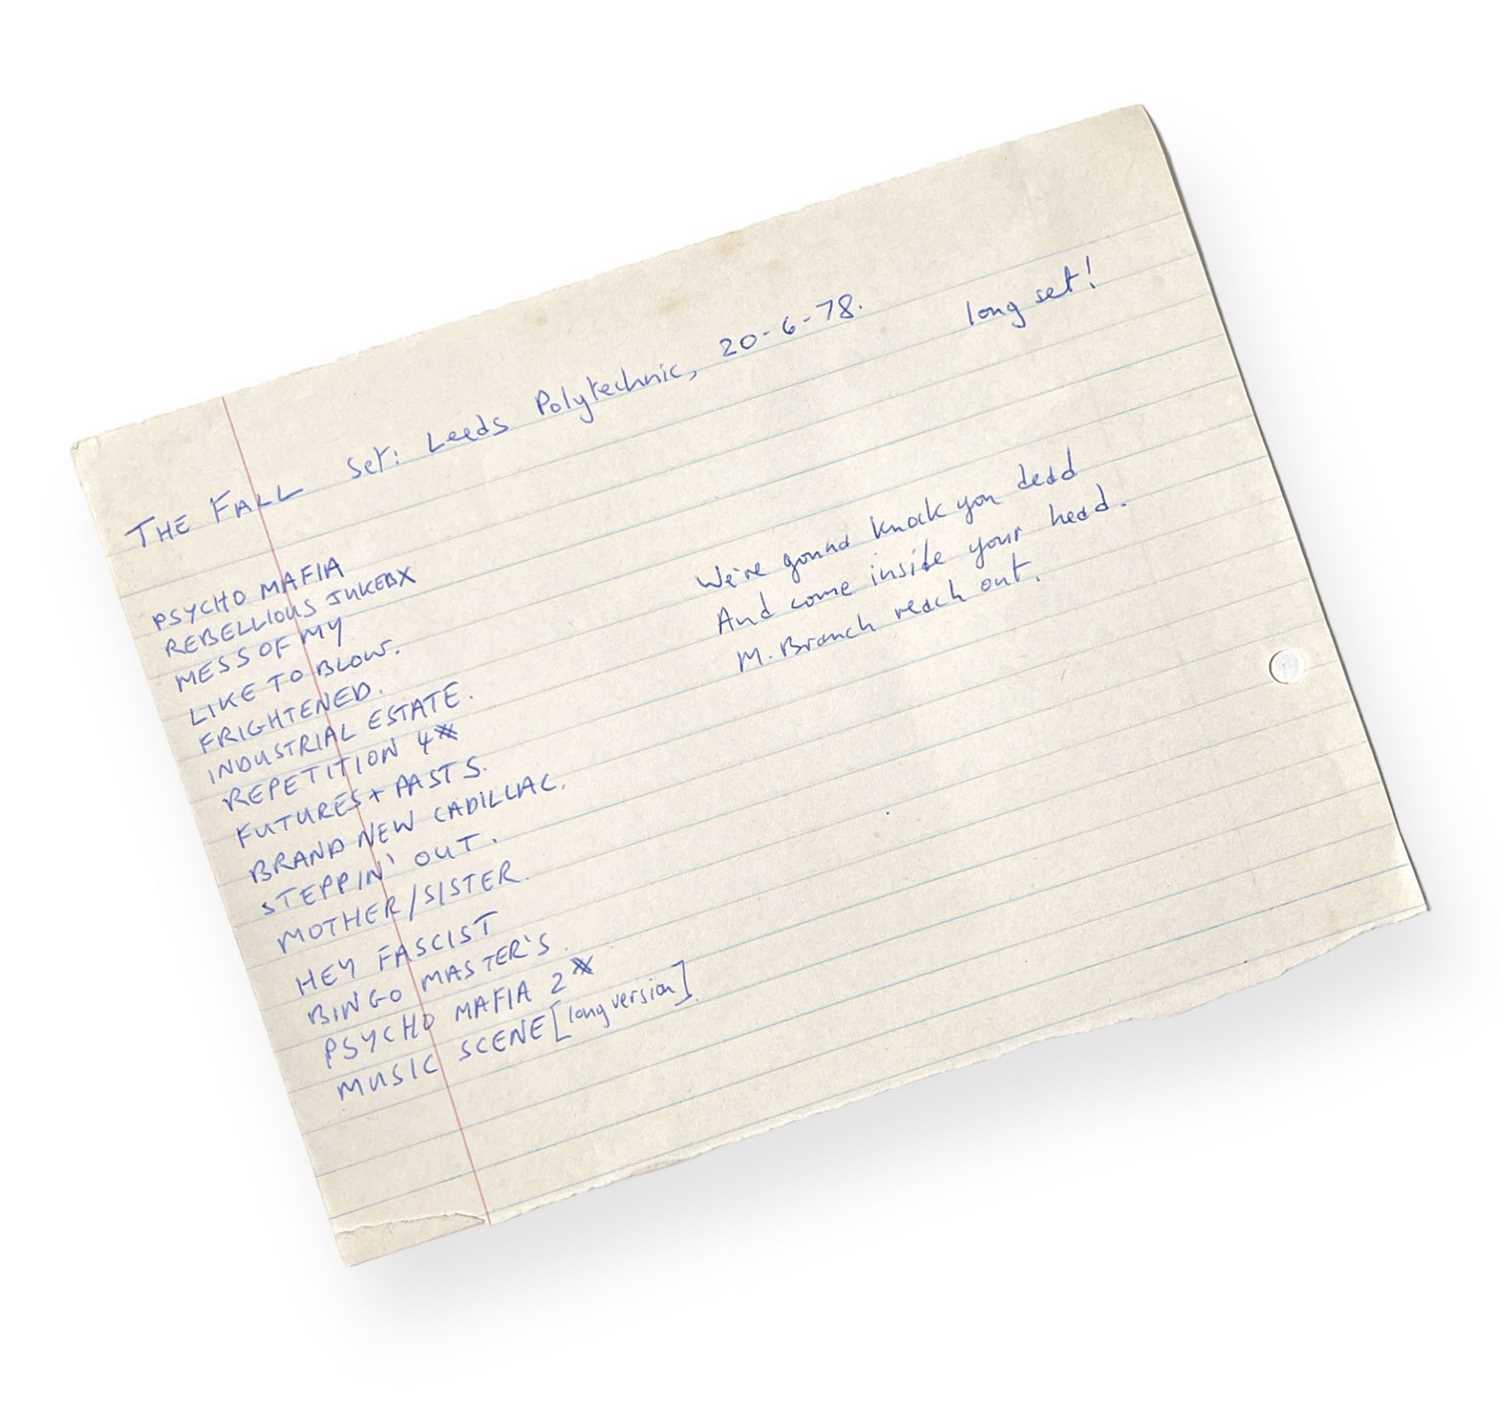 THE FALL set: Leeds Polytechnic, 20-6-78. long set!
PSYCHO MAFIA
REBELLIOUS JUKEBX
MESS OF MY
LIKE TO BLOW.
FRIGHTENED.
INDUSTRIAL ESTATE.
REPETITION 4X
FUTURES + PASTS.
BRAND NEW CADILLAC.
STEPPIN' OUT.
MOTHER/SISTER.
HEY FASCIST
BINGO MASTER'S.
PSYCHO MAFIA 2X
MUSIC SCENE [long version].
We're gonna knock you dead
And come inside your head.
M. Branch reach out.